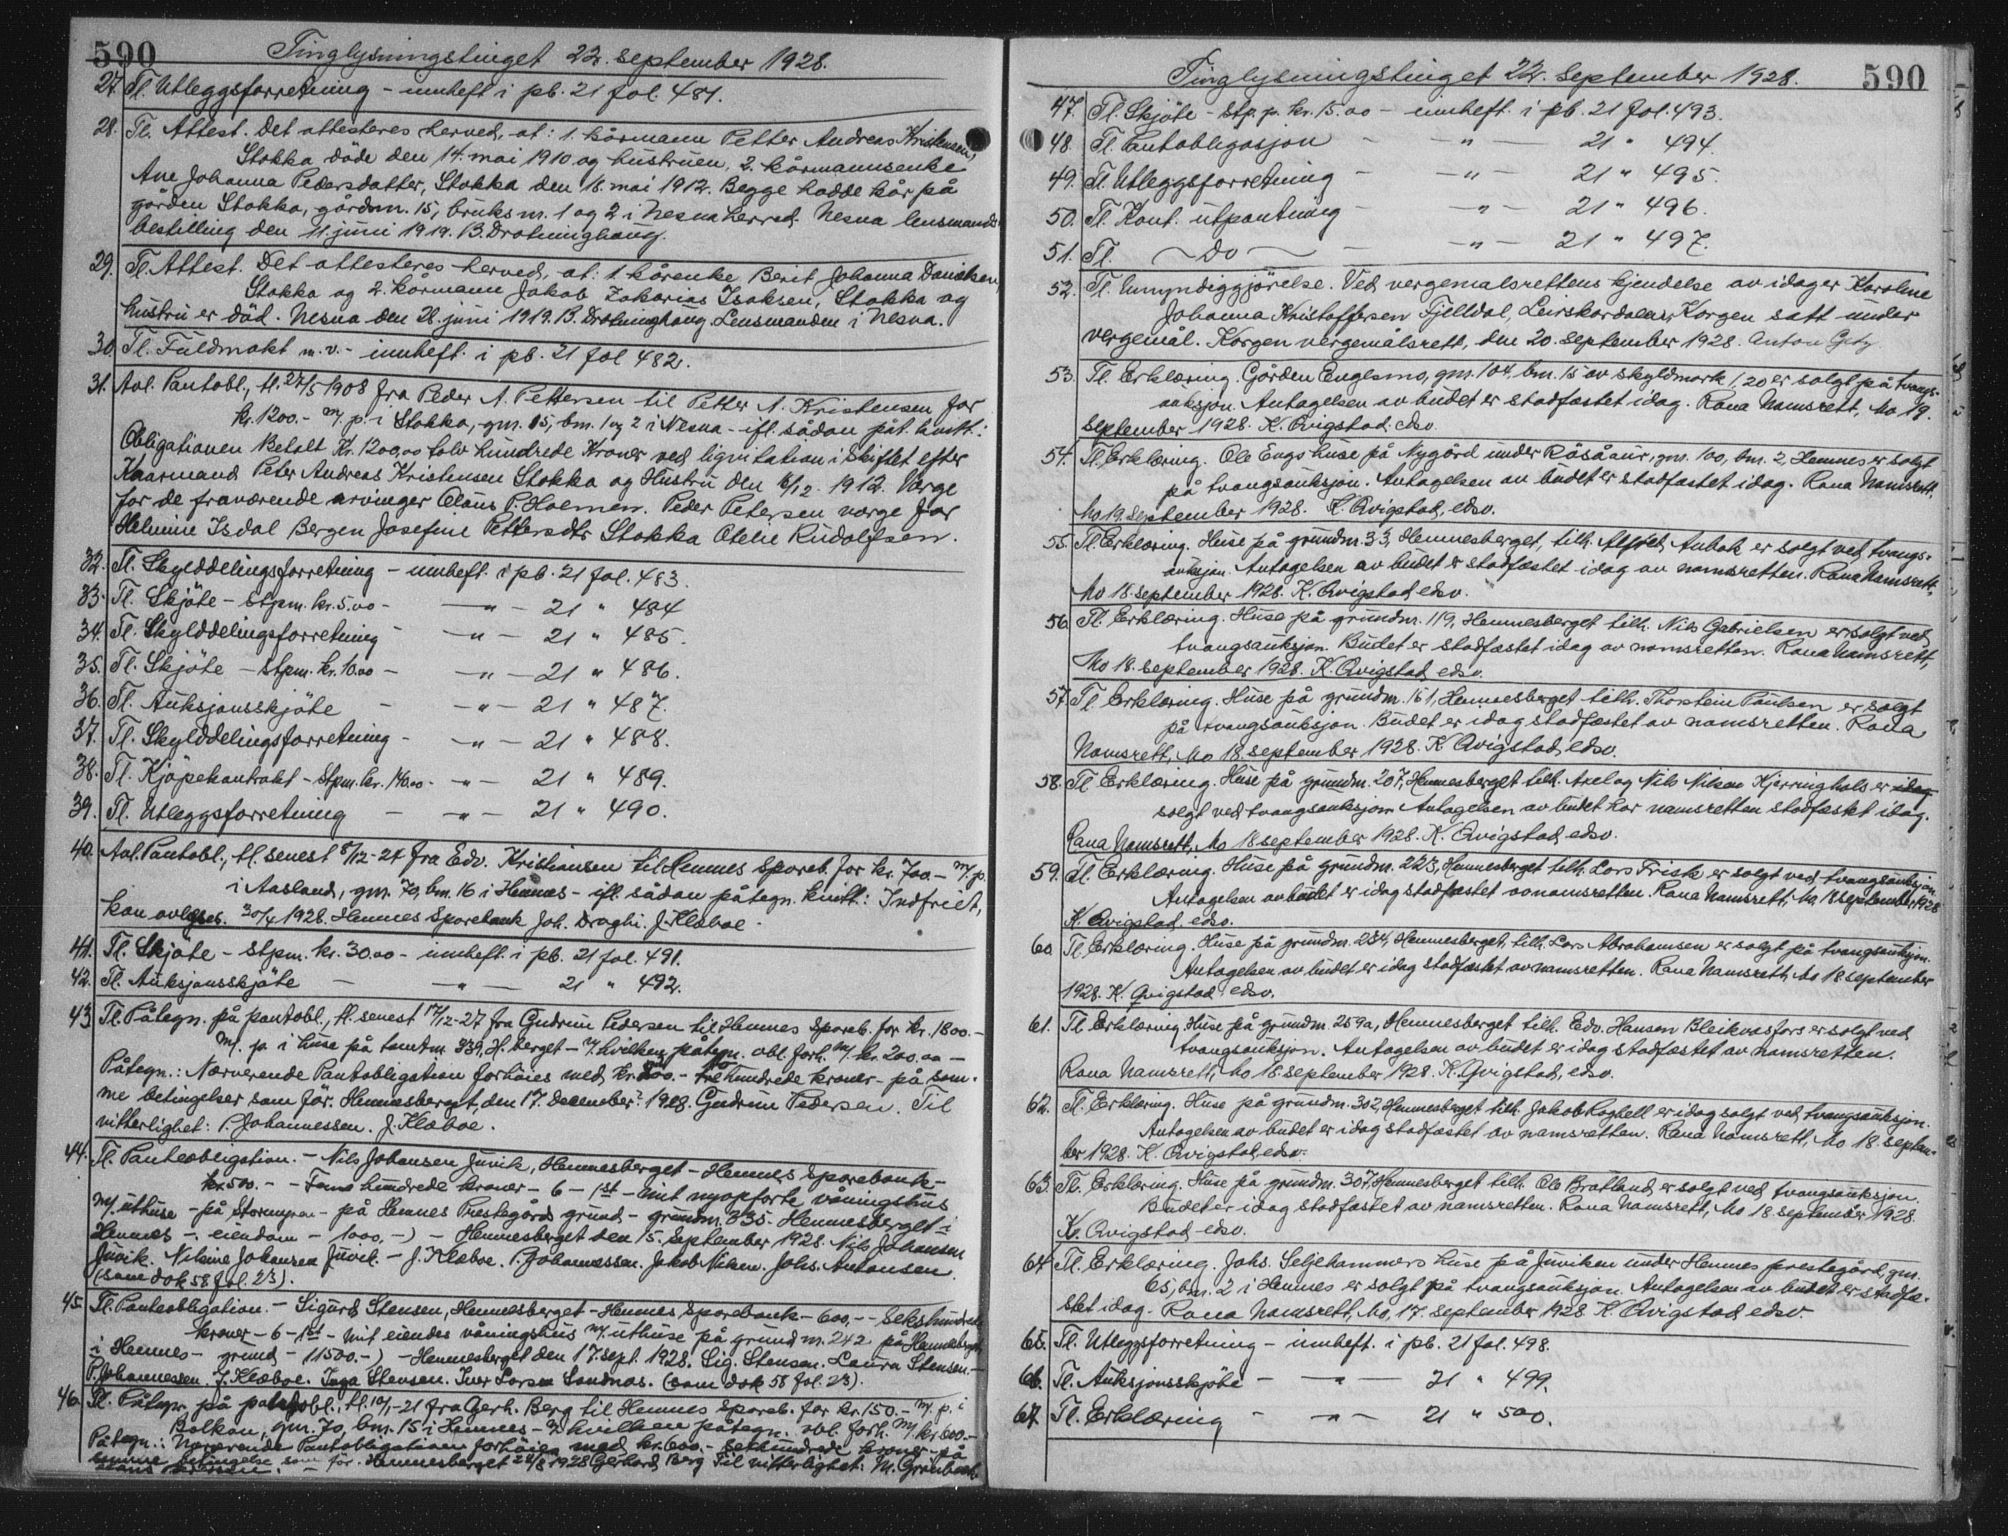 590
Tinglysningstinget 22. september 1928.
27. Tl. Utleggsforretning - innheft i pb. 21 fol. 481.
28. Tl. Attest. Det attesteres herved, at: 1. kårmann Petter Andreas Kristensen,
Stokka döde den 14. mai 1910 og hustruen, 2. kårmannsenke
Ane Johanna Pedersdatter, Stokka den 18. mai 1912. Begge hadde kår på
gården Stokka, gårdsnr. 15, bruksnr. 1 og 2 i Nesna herred. Nesna lensmands-
bestilling den 11. juni 1919. B. Drotninghaug.
29. Tl. Attest. Det attesteres herved, at: 1. kårenke Berit Johanna Danielsen,
Stokka og 2. kårmann Jakob Zakarias Isaksen, Stokka og
hustru er död. Nesna den 28. juni 1919. B. Drotninghaug Lensmanden i Nesna.
30. Tl. Fuldmakt m.v. - innheft. i pb. 21 fol 482.
31. Avl. Pantobl., tl. 27/5 1908 fra Peder A. Pettersen til Petter A. Kristensen for
kr. 1200.- m/ p. i Stokka, gnr. 15, bnr. 1 og 2 i Nesna - ifl. sådan påt. kvitt:
Obligationen Betalt Kr. 1200,00 tolv hundrede Kroner ved ligvitation i Skiftet efter
Kaarmand Peter Andreas Kristensen Stokka og Hustru den 6/12 1912. Værge
for de fraværende arvinger Olaus P. Holmen. Peder Petersen værge for
Helmine Isdal Bergen Josefine Pettersdtr Stokka Otelie Rudolfsen.
32. Tl. Skylddelingsforretning - innheft. i pb. 21 fol. 483.
33. Tl. Skjöte - Stpm. kr. 5.00 - - " - 21 " 484
34. Tl. Skylddelingsforretning - - " - 21 " 485.
35. Tl. Skjöte - Stpm. kr. 10.00 - - " - 21 " 486.
36. Tl. Auksjonsskjöte - - " - 21 " 487.
37. Tl. Skylddelingsforretning - - " - 21 " 488.
38. Tl. Kjöpekontrakt - Stpm. kr. 14.00 - - " - 21 " 489.
39. Tl. Utleggsforretning - - " - 21 " 490.
40. Avl. Pantobl., tl. senest 8/12-24 fra Edv. Kristiansen til Hemnes Spareb. for kr. 700.- m/ p.
i Aasland, gnr. 70, bnr. 16 i Hemnes - ifl. sådan påtegn. kvitt: Indfriet,
kan avlyses. 30/4 1928. Hemnes Sparebank Joh. Draghi. J. Klæboe.
41. Tl. Skjöte - Stpm. kr. 30.00 - innheft. i pb. 21 fol. 491.
42. Tl. Auksjonsskjöte - - " - 21 " 492.
43. Tl. Påtegn. på pantobl., tl. senest 17/12-27 fra Gudrun Pedersen til Hemnes Spareb. for kr. 1800.-
m/ p. i huse på tomtnr. 339, H.berget - v/ hvilken påtegn. obl. forh. m/ kr. 200.00 -
Påtegn.: Nærverende Pantobligation forhöies med kr. 200.- hundrede kroner - på sam-
me betingelser som för. Hemnesberget, den 17. december? 1928. Gudrun Pedersen. Til
vitterlighet: P. Johannessen. J. Klæboe.
44. Tl. Panteobligation. - Nils Johansen Juvik, Hemnesberget - Hemnes Sparebank -
kr. 500.- - Fem hundrede kroner - 6 - 1st - mit nyopförte våningshus
m/ uthuse - på Stormyren - på Hemnes Prestegårds grund - grundnr. 335 - Hemnesberget i
Hemnes - eiendom - 1000.-) - Hemnesberget den 15. september 1928. Nils Johansen
Juvik. Nilsine Johansen Juvik - J. Klæboe. P. Johannessen. Jakob Nilsen. Johs. Antonsen
(som dok 58 fol. 23).
45. Tl. Panteobligation. - Sigurd Stensen, Hemnesberget - Hemnes Sparebank - 600.- - Sekshundrede
kroner - 6 - 1st - mit eiendes våningshus m/ uthuse på grundnr. 242 på Hemnesberget
i Hemnes - grund - 11500.-) - Hemnesberget den 17. sept. 1928. Sig. Stensen. Laura Stensen. -
P. Johannessen. J. Klæboe. Inga Stensen. Iver Larsen Sandnes. (som dok 58 fol. 23).
46. Tl. Påtegn. på pantobl., tl. -21 fra Gerh. Berg til Hemnes Spareb. for kr. 150.- m/ p. i
Balkan, gnr. 70, bnr. 15 i Hemnes - v/ hvilken påtegn. obl. forh. m/ kr. 600.-
Påtegn.: Nærværende Pantobligation forhöies med kr. 600.- sekshundrede kroner - på
samme betingelse som för. Hemnesberget 28/8 1928 Gerhard Berg Til vitterlighet: M. Grønbech

Tinglysningstinget 22. september 1928.
590
47. Tl. Skjöte - Stp. p. kr. 15.00 - innheft. i pb. 21 fol. 493.
48. Tl. Pantobligasjon - - " - 21 " 494.
49. Tl. Utleggsforretning - - " - 21 " 495.
50. Tl. Kont. utpantning - - " - 21 " 496.
51. Tl. - Do - - - " - 21 " 497.
52. Tl. Umyndiggjörelse. Ved vergemålsrettens kjendelse av idag er Karoline
Johanna Kristoffersen Fjelldal, Leirskardalen, Korgen satt under
vergemål. Korgen vergemålsrett, den 20. september 1928. Anton Getz.
53. Tl. Erklæring. Gården Englsmo, gnr. 104, bnr. 15 av skyldmark 1,20 er solgt på tvangs-
auksjon. Antagelsen av budet er stadfæstet idag. Rana Namsrett, Mo 19.
september 1928. K. Qvigstad, edsv.
54. Tl. Erklæring. Ole Engs huse på Nygård under Rösåaur, gnr. 100, bnr. 2, Hemnes er solgt
på tvangsauksjon. Antagelsen av budet er stadfæstet idag. Rana Namsrett.
Mo 19. september 1928. K. Qvigstad, edsv.
55. Tl. Erklæring. Huse på grundnr. 33, Hemnesberget, tilh. Alfred Aubak er solgt ved tvangs-
auksjon. Antagelsen av budet er stadfæstet idag av namsretten. Rana Namsrett,
Mo 18. september 1928. K. Qvigstad, edsv.
56. Tl. Erklæring. Huse på grundnr. 119, Hemnesberget tilh. Nils Gabrielsen er solgt ved
tvangsauksjon. Budet er stadfæstet idag av namsretten. Rana Namsrett,
Mo 18. september 1928. K. Qvigstad edsv.
57. Tl. Erklæring. Huse på grundnr. 151, Hemnesberget tilh. Thorstein Paulsen er solgt
på tvangsauksjon. Budet er idag stadfæstet av namsretten. Rana
Namsrett, Mo 18. september 1928. K. Qvigstad, edsv.
58. Tl. Erklæring. Huse på grundnr. 207, Hemnesberget tilh. Axel og Nils Nilsen Hjerringhals er idag
solgt ved tvangsauksjon. Antagelsen av budet har namsretten stadfæstet idag.
Rana Namsrett, Mo 18. september 1928. K. Qvigstad edsv.
59. Tl. Erklæring. Huse på grundnr. 223, Hemnesberget tilh. Lars Frisk er solgt ved tvangsauksjon.
Antagelsen av budet er idag stadfæstet av namsretten. Rana Namsrett, Mo 18 september 1928
K. Qvigstad, edsv.
60. Tl. Erklæring. Huse på grundnr. 234, Hemnesberget, tilh. Lars Abrahamsen er solgt på tvangsauksjon.
Antagelsen av budet er idag stadfæstet av namsretten. Rana Namsrett, Mo 18 september
1928. K. Qvigstad edsv.
61. Tl. Erklæring. Huse på grundnr. 259a, Hemnesberget tilh. Edv. Hansen Bleikvasfors er solgt ved
tvangsauksjon. Antagelsen av budet er idag stadfæstet av namsretten.
Rana Namsrett, Mo 18. september 1928. K. Qvigstad, edsv.
62. Tl. Erklæring. Huse på grundnr. 302, Hemnesberget tilh. Jakob Røghell er idag solgt ved tvangsauksjon.
Antagelsen av budet er idag stadfæstet av namsretten. Rana Namsrett, Mo 18. septem-
ber 1928. K. Qvigstad, edsv.
63. Tl. Erklæring. Huse på grundnr. 307, Hemnesberget tilh. Ole Bratland, er solgt ved tvangsauksjon.
Budet er idag stadfæstet av namsretten. Rana Namsrett, Mo 18 september 1928.
K. Qvigstad edsv.
64. Tl. Erklæring. Johs. Seljehammers huse på Juviken under Hemnes prestegård, gnr.
65, bnr. 2 i Hemnes er solgt på tvangsauksjon. Antagelsen av budet er stadfæ-
stet idag. Rana Namsrett, Mo, 17. september 1928 K. Qvigstad edsv.
65. Tl. Utleggsforretning - innheft. i pb. 21 fol. 498.
66. Tl. Auksjonsskjöte - - " - 21 " 499.
67. Tl. Erklæring - - " - 21 " 500.